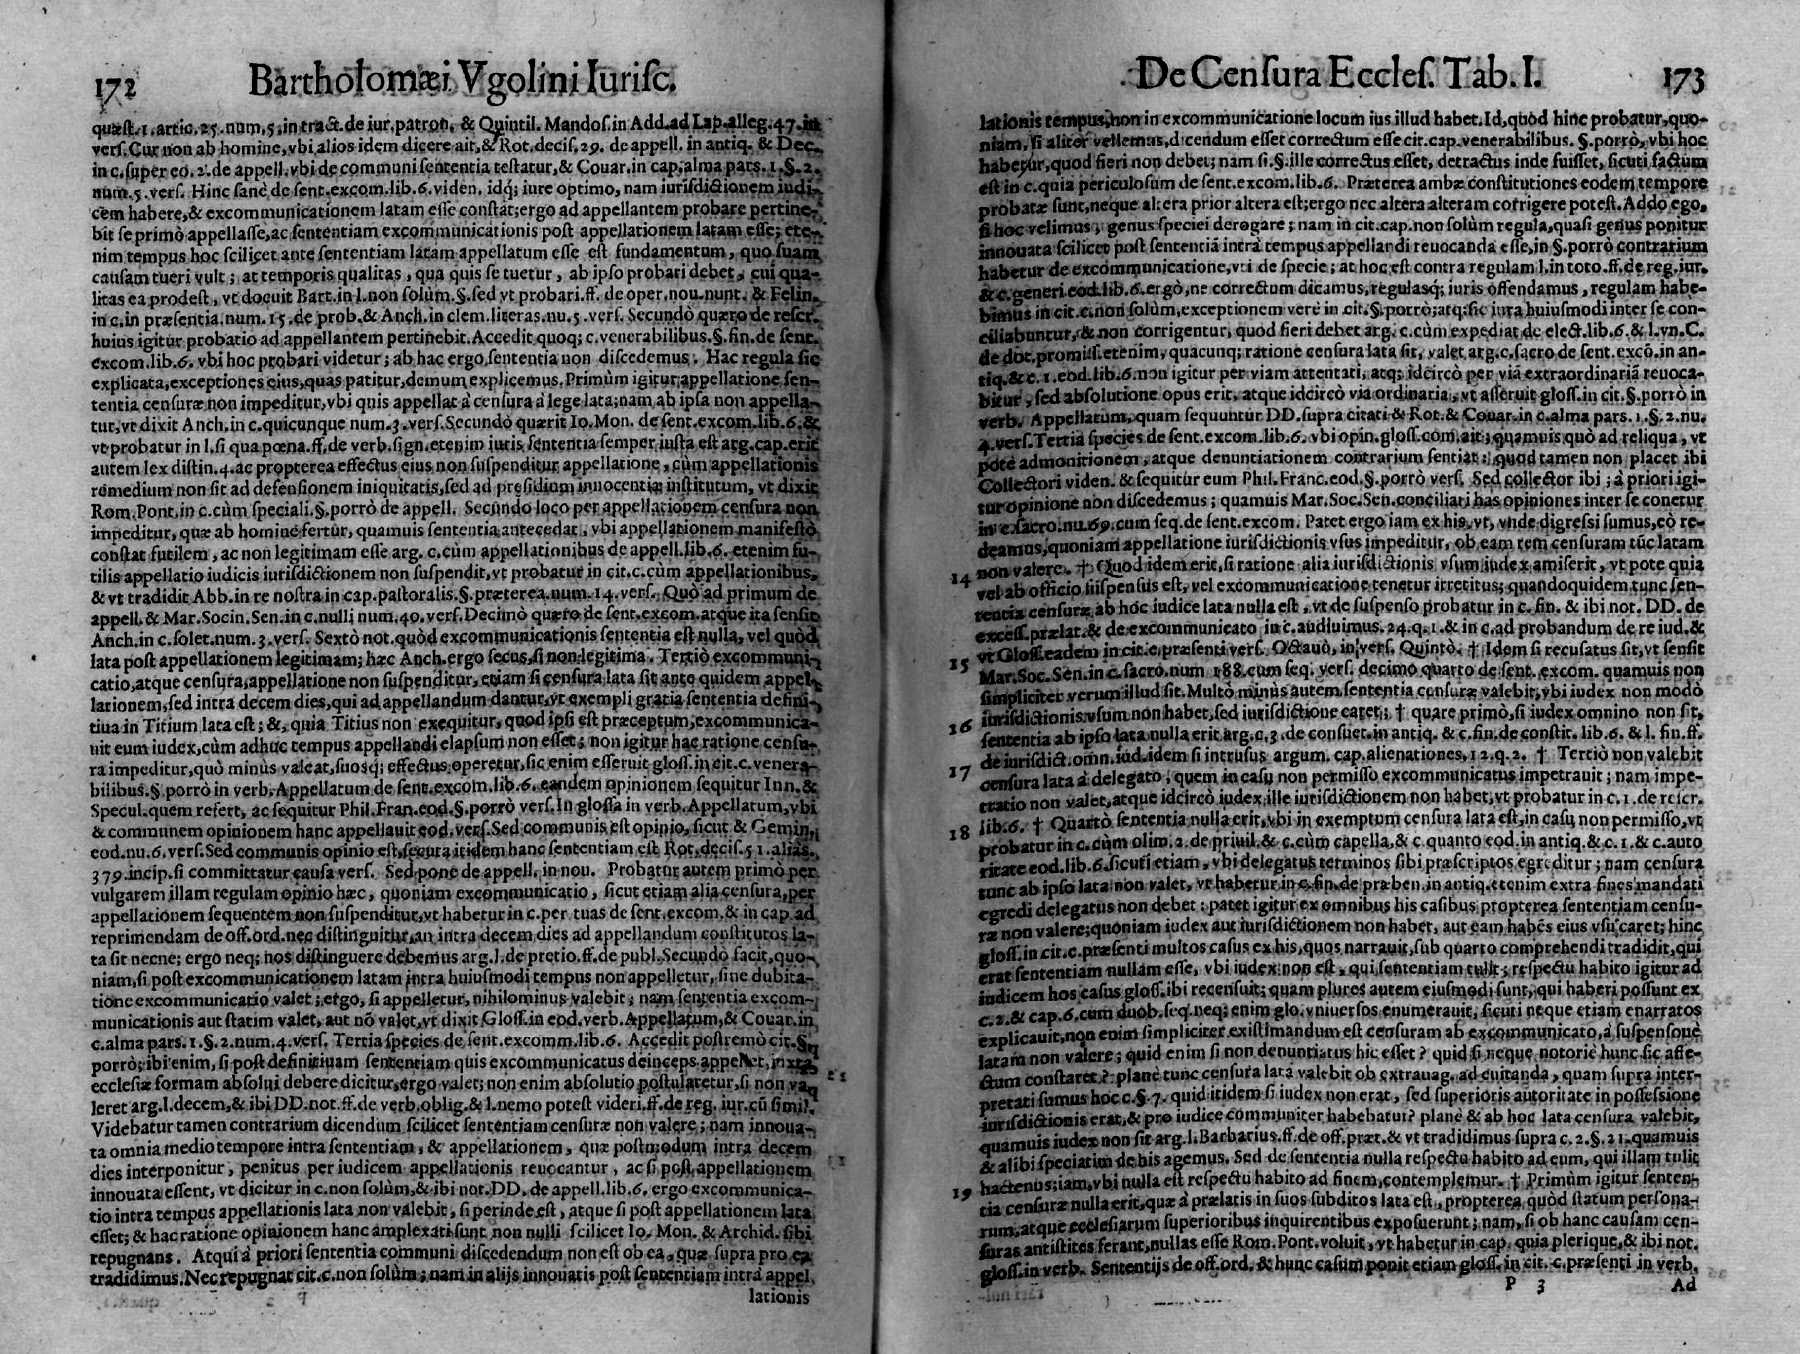 172 Bartholomæi Vgolini Iurisc.
quæst.1.artic.25.num.5.in tract.de iur.patron. & Quintil. Mandos.in Add.ad Lap.alleg.47.in
vers.Cur non ab homine,vbi alios idem dicere ait,& Rot.decis.29. de appell. in antiq. & Dec.
in c.super eo.2.de appell.vbi de communi sententia testatur,& Couar.in cap.alma pars.1.§.2.
num.5.vers. Hinc sanè de sent.excom.lib.6.viden. idq; iure optimo, nam iurisdictionem iudi-
cem habere,& excommunicationem latam esse constat;ergo ad appellantem probare pertine-
bit se primò appellasse,ac sententiam excommunicationis post appellationem latam esse; ete-
nim tempus hoc scilicet ante sententiam latam appellatum esse est fundamentum, quo suam
causam tueri vult; at temporis qualitas, qua quis se tuetur, ab ipso probari debet, cui qua-
litas ea prodest, vt docuit Bart.in l.non solùm.§.sed vt probari.ff. de oper.nou.nunt. & Felin.
in c.in præsentia.num.15.de prob.& Anch.in clem.literas.nu.5.vers. Secundò quæro de rescr.
huius igitur probatio ad appellantem pertinebit.Accedit quoq; c.venerabilibus.§.fin.de sent.
excom.lib.6. vbi hoc probari videtur; ab hac ergo sententia non discedemus. Hac regula sic
explicata,exceptiones eius,quas patitur,demum explicemus.Primùm igitur appellatione sen-
tentia censuræ non impeditur,vbi quis appellat à censura à lege lata;nam ab ipsa non appella-
tur,vt dixit Anch.in c.quicunque num.3.vers.Secundò quærit Io.Mon. de sent.excom.lib.6.&
vt probatur in l.si qua pœna.ff.de verb.sign.etenim iuris sententia semper iusta est arg.cap.erit
autem lex distin.4.ac propterea effectus eius non suspenditur appellatione, cùm appellationis
remedium non sit ad defensionem iniquitatis,sed ad præsidium innocentiæ institutum, vt dixit
Rom.Pont.in c.cùm speciali.§.porrò de appell. Secundo loco per appellationem censura non
impeditur, quæ ab homine fertur, quamuis sententia antecedat, vbi appellationem manifestò
constat futilem, ac non legitimam esse arg. c.cùm appellationibus de appell.lib.6. etenim fu-
tilis appellatio iudicis iurisdictionem non suspendit,vt probatur in cit.c.cùm appellationibus,
& vt tradidit Abb.in re nostra in cap.pastoralis.§.præterea.num.14.vers. Quò ad primum de
appell.& Mar.Socin.Sen.in c.nulli num.40.vers.Decimò quæro de sent.excom.atque ita sensit
Anch.in c.solet.num.3.vers. Sextò not.quòd excommunicationis sententia est nulla, vel quòd
lata post appellationem legitimam; hæc Anch.ergo secus,si non legitima. Tertiò excommuni-
catio,atque censura,appellatione non suspenditur, etiam si censura lata sit ante quidem appel-
lationem,sed intra decem dies,qui ad appellandum dantur,vt exempli gratia sententia defini-
tiua in Titium lata est; &, quia Titius non exequitur, quod ipsi est præceptum, excommunica-
uit eum iudex,cùm adhuc tempus appellandi elapsum non esset; non igitur hac ratione censu-
ra impeditur,quò minùs valeat,suosq; effectus operetur,sic enim asseruit gloss.in cit.c.venera-
bilibus.§.porrò in verb.Appellatum de sent.excom.lib.6. eandem opinionem sequitur Inn.&
Specul.quem refert, ac sequitur Phil.Fran.eod.§.porrò vers.In glossa in verb.Appellatum,vbi
& communem opinionem hanc appellauit eod.vers.Sed communis est opinio, sicut & Gemin.
eod.nu.6.vers.Sed communis opinio est,secuta itidem hanc sententiam est Rot.decis.51.alias.
379.incip.si committatur causa vers. Sed pone de appell. in nou. Probatur autem primò per
vulgarem illam regulam opinio hæc, quoniam excommunicatio, sicut etiam alia censura,per
appellationem sequentem non suspenditur,vt habetur in c.per tuas de sent.excom.& in cap.ad
reprimendam de off.ord.nec distinguitur,an intra decem dies ad appellandum constitutos la-
ta sit necne; ergo neq; nos distinguere debemus arg.l.de pretio.ff.de publ.Secundò facit,quo-
niam,si post excommunicationem latam intra huiusmodi tempus non appelletur, sine dubita-
tione excommunicatio valet; ergo, si appelletur, nihilominus valebit; nam sententia excom-
municationis aut statim valet, aut nō valet,vt dixit Gloss.in eod.verb.Appellatum,& Couar.in
c.alma pars.1.§.2.num.4.vers. Tertia species de sent.excomm.lib.6. Accedit postremò cit.§.
porrò; ibi enim, si post definitiuam sententiam quis excommunicatus deinceps appellet, iuxta
ecclesiæ formam absolui debere dicitur,ergo valet; non enim absolutio postularetur, si non va-
leret arg.l.decem,& ibi DD.not.ff.de verb.oblig.& l.nemo potest videri.ff.de reg. iur.cū simil.
Videbatur tamen contrarium dicendum scilicet sententiam censuræ non valere; nam innoua-
ta omnia medio tempore intra sententiam, & appellationem, quæ postmodum intra decem
dies interponitur, penitus per iudicem appellationis reuocantur, ac si post appellationem
innouata essent, vt dicitur in c.non solùm,& ibi not.DD. de appell.lib.6. ergo excommunica-
tio intra tempus appellationis lata non valebit, si perinde est, atque si post appellationem lata
esset; & hac ratione opinionem hanc amplexati sunt non nulli scilicet Io. Mon. & Archid. sibi
repugnans. Atqui à priori sententia communi discedendum non est ob ea, quæ supra pro ea
tradidimus.Nec repugnat cit.c.non solùm; nam in alijs innouatis post sententiam intra appel.
lationis
De Censura Eccles. Tab. I. 173
lationis tempus,non in excommunicatione locum ius illud habet.Id,quod hinc probatur,quo-
niam, si aliter vellemus,dicendum esset correctum esse cit.cap.venerabilibus. §.porrò, vbi hoc
habetur,quod fieri non debet; nam si.§.ille correctus esset, detractus inde fuisset, sicuti factum
est in c.quia periculosum de sent.excom.lib.6. Præterea ambæ constitutiones eodem tempore
probatæ sunt,neque altera prior altera est;ergo nec altera alteram corrigere potest.Addo ego,
si hoc velimus, genus speciei derogare; nam in cit.cap.non solùm regula,quasi genus ponitur
innouata scilicet post sententiā intra tempus appellandi reuocanda esse,in §.porrò contrarium
habetur de excommunicatione,vti de specie; at hoc est contra regulam l.in toto.ff.de reg.iur.
& c.generi eod.lib.6.ergò,ne correctum dicamus,regulasq; iuris offendamus, regulam habe-
bimus in cit.c.non solùm,exceptionem verè in cit.§.porrò;atq; sic iura huiusmodi inter se con-
ciliabuntur, & non corrigentur, quòd fieri debet arg. c.cùm expediat de elect.lib.6.& l.vn.C.
de dot.promiss.etenim, quacunq; ratione censura lata sit, valet arg.c.sacro de sent.excō.in an-
tiq.& c.1.eod.lib.6.non igitur per viam attentati, atq; idcircò per viā extraordinariā reuoca-
bitur, sed absolutione opus erit, atque idcircò via ordinaria, vt asseruit gloss.in cit.§.porrò in
verb. Appellatum, quam sequuntur DD.supra citati & Rot.& Couar.in c.alma pars.1.§.2.nu.
4.vers.Tertia species de sent.excom.lib.6. vbi opin.gloss.com.ait; quamuis quò ad reliqua, vt
potè admonitionem, atque denuntiationem contrarium sentiat: quod tamen non placet ibi
Collectori viden. & sequitur eum Phil. Franc.eod.§.porrò vers. Sed collector ibi; à priori igi-
tur opinione non discedemus; quamuis Mar.Soc.Sen.conciliari has opiniones inter se conetur
in c.sacro.nu.69.cum seq.de sent.excom. Patet ergo iam ex his, vt, vnde digressi sumus,cò re-
deamus,quoniam appellatione iurisdictionis vsus impeditur, ob eam rem censuram tūc latam
14 non valere. † Quod idem erit, si ratione alia iurisdictionis vsum iudex amiserit, vt pote quia
vel ab officio suspensus est, vel excommunicatione tenetur irretitus; quandoquidem tunc sen-
tentia censuræ ab hoc iudice lata nulla est, vt de suspenso probatur in c. fin. & ibi not. DD. de
excess.prælat.& de excommunicato in c.audiuimus.24.q.1.& in c.ad probandum de re iud.&
15 vt Gloss.eadem in cit.c.præsenti vers. Octauò, in vers. Quintò. † Idem si recusatus sit,vt sensit
Mar.Soc.Sen.in c.sacrò.num.188.cum seq. vers. decimo quarto de sent. excom. quamuis non
simpliciter verum illud sit. Multò minùs autem sententia censuræ valebit,vbi iudex non modò
16 iurisdictionis vsum non habet,sed iurisdictione caret; † quare primò,si iudex omnino non sit,
sententia ab ipso lata nulla erit arg.c.3.de consuet.in antiq.& c.fin.de constit. lib.6. & l. fin.ff.
17 de iurisdict.omn.iud.idem si intrusus argum. cap.alienationes.12.q.2. † Tertiò non valebit
censura lata à delegato, quem in casu non permisso excommunicatus impetrauit; nam impe-
tratio non valet,atque idcircò iudex ille iurisdictionem non habet,vt probatur in c.1.de rescr.
18 lib.6. † Quartò sententia nulla erit,vbi in exemptum censura lata est,in casu non permisso,vt
probatur in c.cùm olim.2.de priuil.& c.cùm capella,& c.quanto eod.in antiq.& c.1.& c.auto
ritate eod.lib.6.sicuti etiam, vbi delegatus terminos sibi præscriptos egreditur; nam censura
tunc ab ipso lata non valet, vt habetur in c.fin.de præben.in antiq.etenim extra fines mandati
egredi delegatus non debet: patet igitur ex omnibus his casibus propterea sententiam censu-
ræ non valere;quoniam iudex aut iurisdictionem non habet, aut eam habēs eius vsu caret; hinc
gloss.in cit.c.præsenti multos casus ex his,quos narrauit,sub quarto comprehendi tradidit,qui
erat sententiam nullam esse, vbi iudex non est, qui sententiam tulit; respectu habito igitur ad
iudicem hos casus gloss.ibi recensuit; quam plures autem eiusmodi sunt,qui haberi possunt ex
c.2.& cap.6.cum duob.seq.neq; enim glo.vniuersos enumerauit, sicuti neque etiam enarratos
explicauit,non enim simpliciter existimandum est censuram ab excommunicato, à suspensouè
latam non valere; quid enim si non denuntiatus hic esset? quid si neque notoriè hunc sic affe-
ctum constaret? planè tunc censura lata valebit ob extrauag. ad euitanda, quam supra inter-
pretati sumus hoc c.§.7. quid itidem si iudex non erat, sed superioris autoritate in possessione
iurisdictionis erat,& pro iudice communiter habebatur? planè & ab hoc lata censura valebit,
quamuis iudex non sit arg.l.Barbarius.ff.de off.præt.& vt tradidimus supra c.2.§.21.quamuis
& alibi speciatim de his agemus. Sed de sententia nulla respectu habito ad eum, qui illam tulit
19 hactenus;iam,vbi nulla est respectu habito ad finem,contemplemur. † Primùm igitur senten-
tia censuræ nulla erit,quæ à prælatis in suos subditos lata est, propterea quòd statum persona-
rum,atque ecclesiarum superioribus inquirentibus exposuerunt; nam, si ob hanc causam cen-
suras antistites ferant,nullas esse Rom.Pont.voluit,vt habetur in cap. quia plerique,& ibi not.
gloss.in verb. Sententijs de off.ord. & hunc casum ponit etiam gloss.in cit.c.præsenti in verb.
P 3 Ad